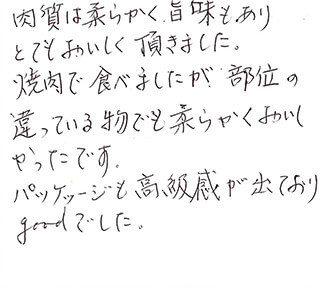 肉質は柔らかく、旨味もあり
とてもおいしく頂きました。
焼肉で食べましたが、部位の
違っている物でも柔らかくおいし
かったです。
パッケージも高級感が出ており
goodでした。